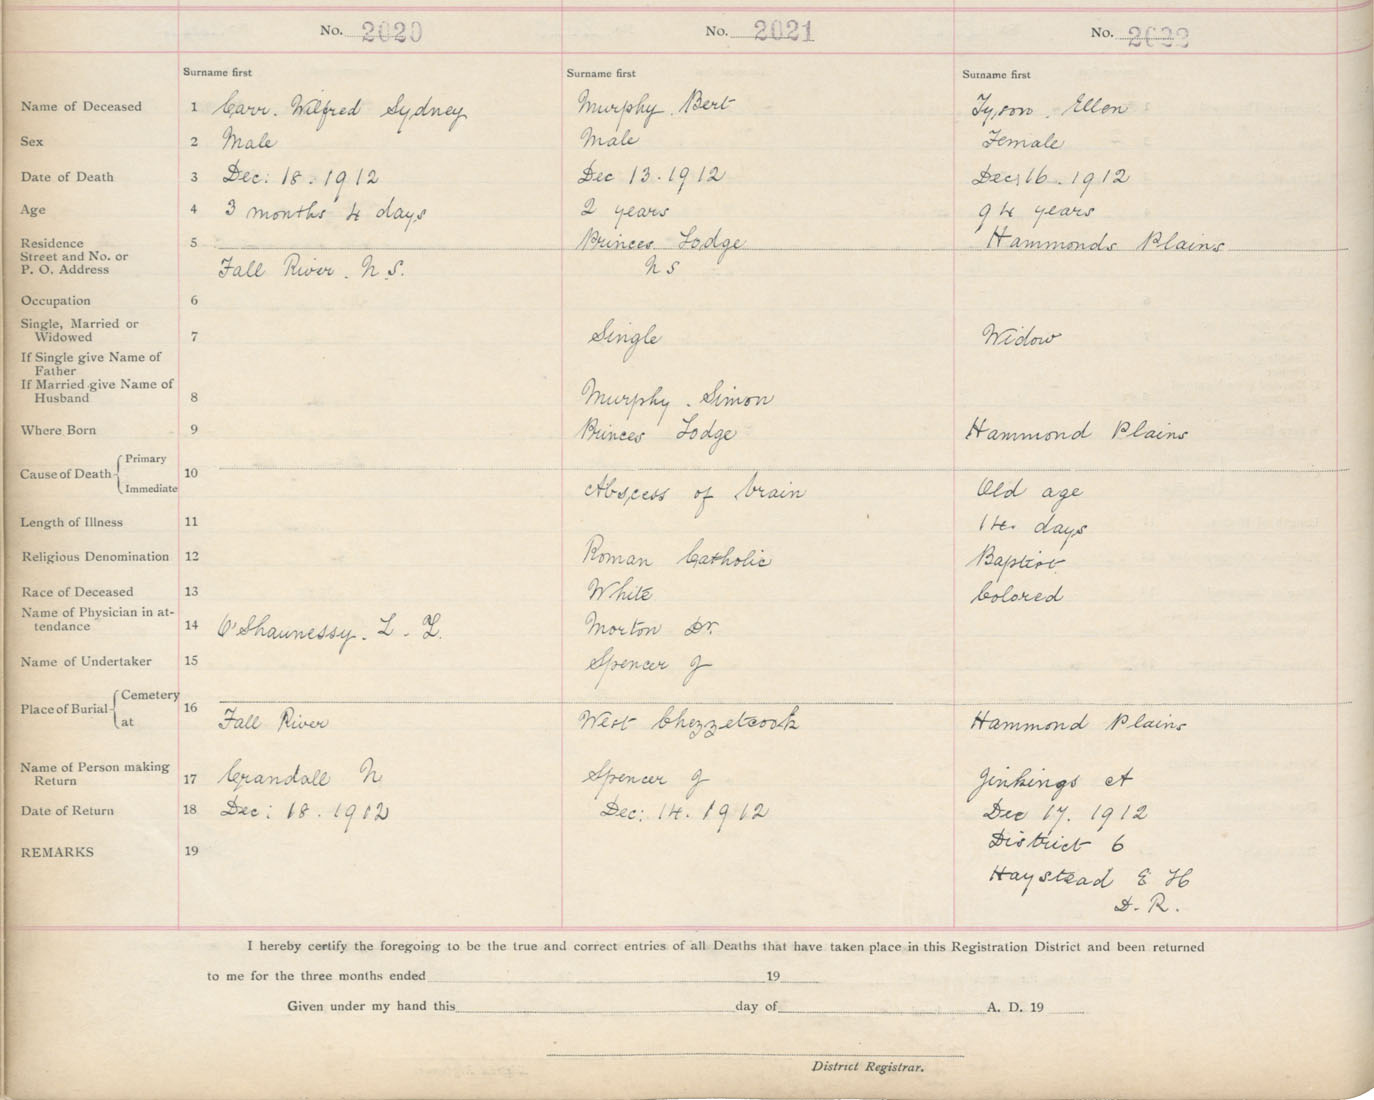 No. 2020 No. 2021 No. 2022
Surname first Surname first Surname first
Name of Deceased 1 Carr. Wilfred Sydney Murphy. Bert Tyson. Ellen
Sex 2 Male Male Female
Date of Death 3 Dec: 18. 1912 Dec 13. 1912 Dec: 16. 1912
Age 4 3 months 4 days 2 years 94 years
Residence 5 Princes Lodge Hammonds Plains
Street and No. or
P. O. Address Fall River. N.S. N S
Occupation 6
Single, Married or
Widowed 7 Single Widow
If Single give Name of
Father
If Married give Name of
Husband 8 Murphy. Simon
Where Born 9 Princes Lodge Hammond Plains
Cause of Death Primary 10
Immediate Abscess of brain Old age
Length of Illness 11 14. days
Religious Denomination 12 Roman Catholic Baptist
Race of Deceased 13 White Colored
Name of Physician in at-
tendance 14 O'Shaunessy. L. L. Morton Dr.
Name of Undertaker 15 Spencer J
Place of Burial Cemetery 16
at Fall River West Chezzetcook Hammond Plains
Name of Person making
Return 17 Crandall N Spencer J Jinkings A
Date of Return 18 Dec: 18. 1912 Dec: 14. 1912 Dec 17. 1912
REMARKS 19 District 6
Haystead E H
D. R.
I hereby certify the foregoing to be the true and correct entries of all Deaths that have taken place in this Registration District and been returned
to me for the three months ended 19
Given under my hand this day of A. D. 19
District Registrar.